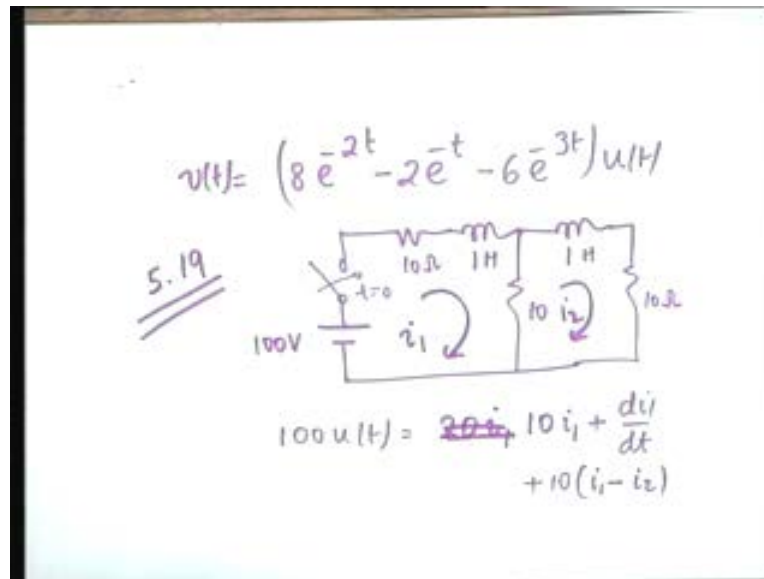 v(t)= (8e^-2t - 2e^-t - 6e^-3t) u(t)
5.19
10Ω 1H 1H
t=0
100V i₁ 10 i₂ 10Ω
100 u(t) = 20i₁ 10 i₁ + di₁/dt
+ 10(i₁ - i₂)